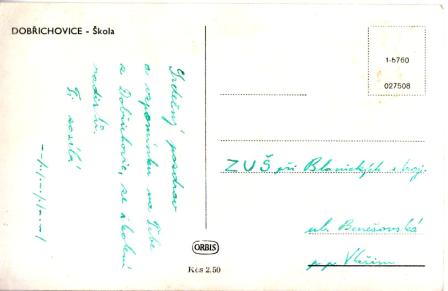 DOBŘICHOVICE - Škola
Srdečný pozdrav
a vzpomínku na Tebe
z Dobřichovic, ze školení
Ti posílá
1-5760
027508
ZUŠ při Blanických stroj.
ul. Benešovská
p.p. Vlašim
ORBIS
Kčs 2.50